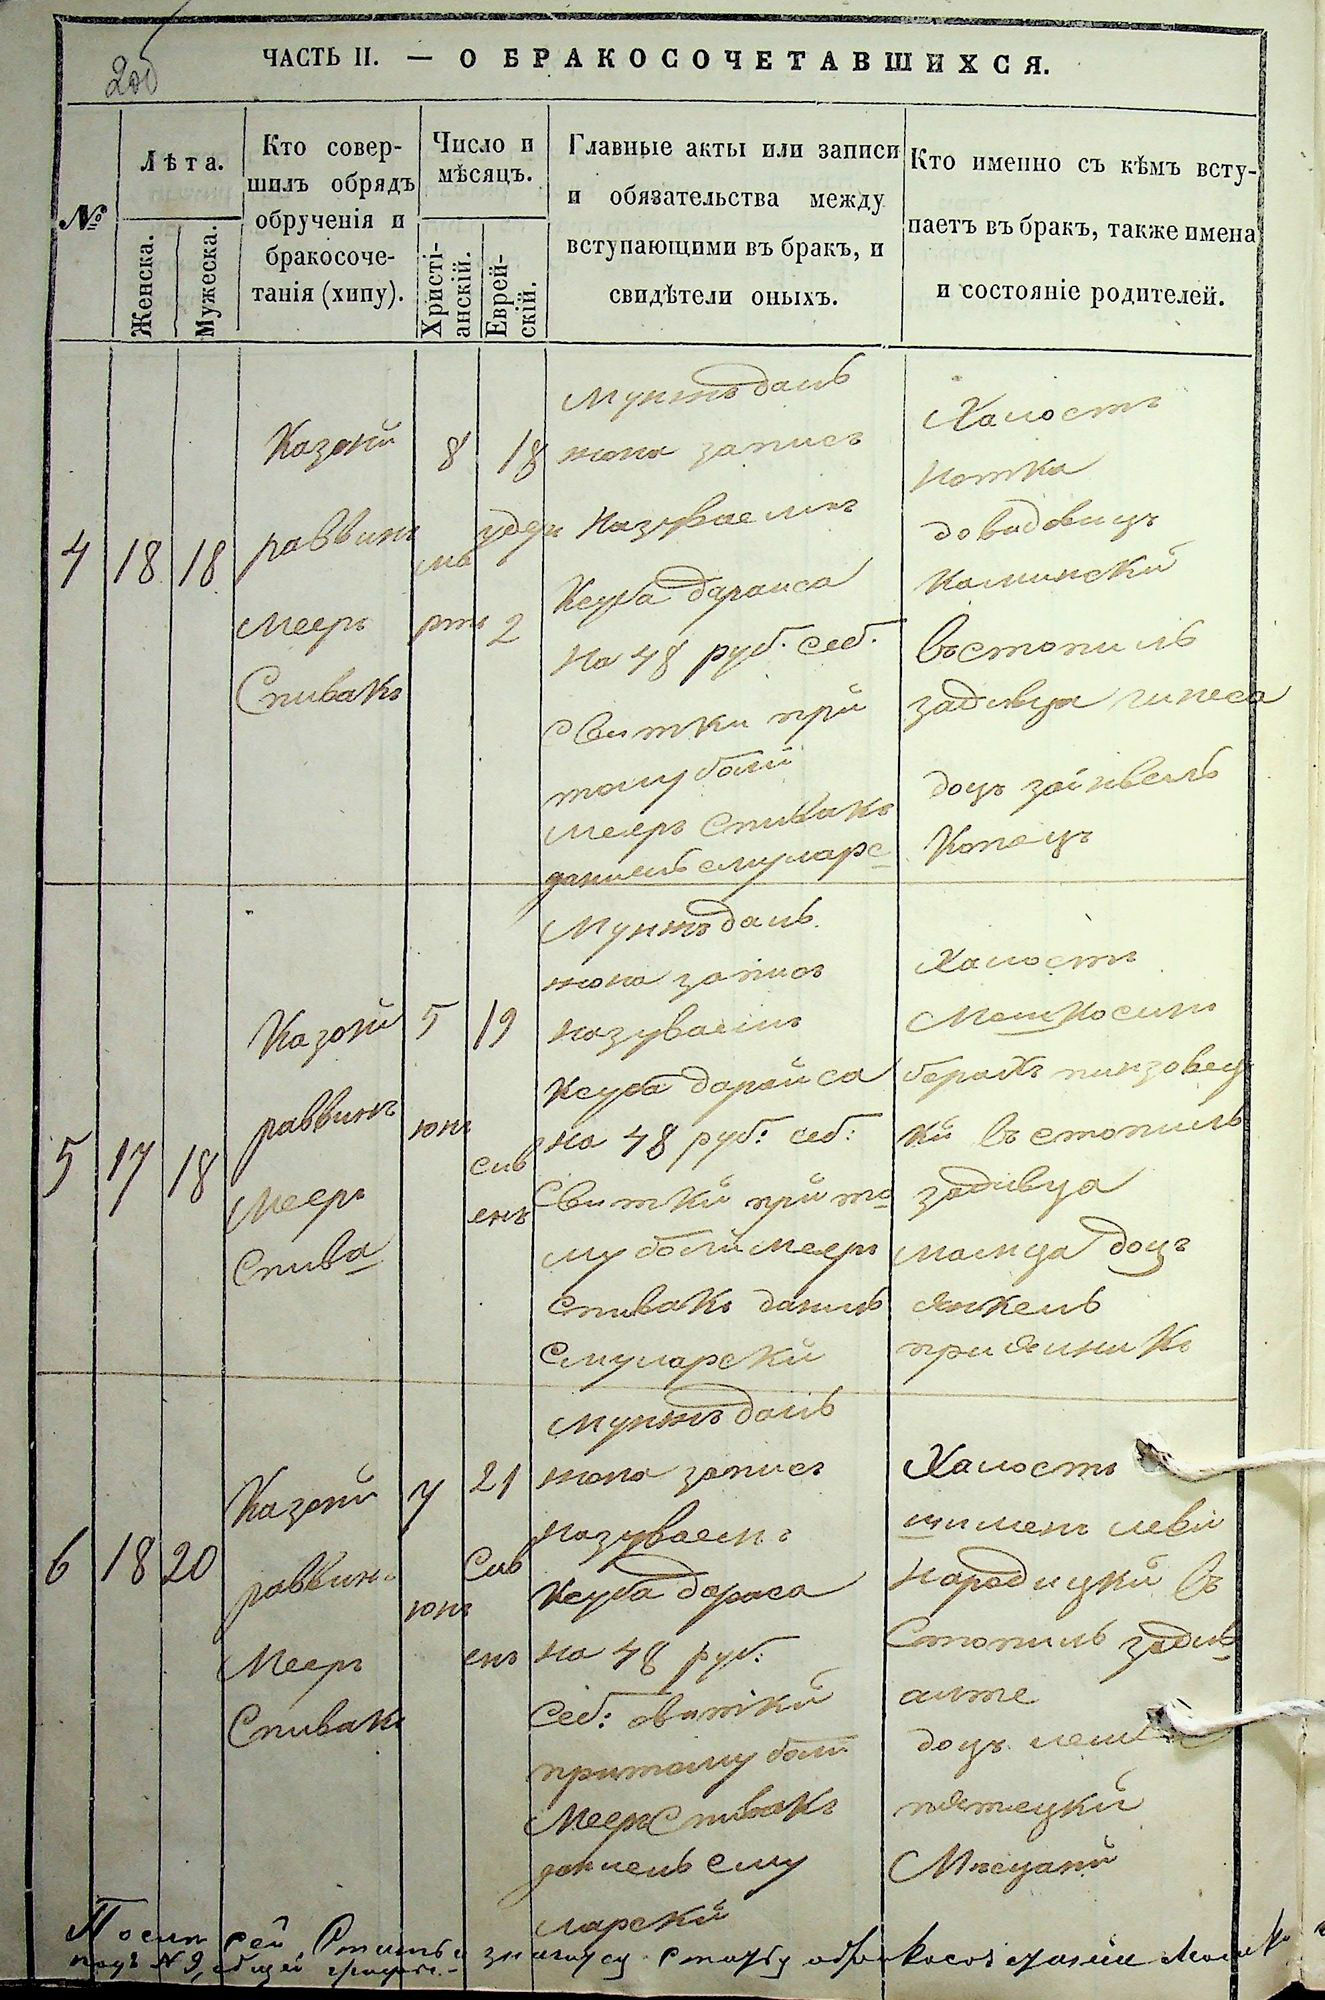 20б
ЧАСТЬ II. — О БРАКОСОЧЕТАВШИХСЯ.
№
Лѣта.
Женска.
Мужеска.
Кто совер-
шилъ обрядъ
обрученія и
бракосоче-
танія (хипу).
Число и
мѣсяцъ.
Христі-
анскій.
Еврей-
скій.
Главные акты или записи
и обязательства между
вступающими въ бракъ, и
свидѣтели оныхъ.
Кто именно съ кѣмъ всту-
паетъ въ бракъ, также имена
и состояніе родителей.
4
18
18
Казони
раввинъ
Мееръ
Спивакъ
8
ма
ртъ
18
удеръ
2
Мунжъ далъ
жона записъ
Назуваемъ
Ксуба дараиса
на 48 руб. себ.
Свитки при
тому боли
Мееръ Спивакъ
даниель смуларс-
Халостъ
Нотка
довидовицъ
Каминский
въстопилъ
задивца гинеса
доцъ зайнвель
Копецъ
5
17
18
Казони
раввинъ
Мееръ
Спива
5
юнъ
19
сив
енъ
Мунжъ далъ
жона записъ
назуваемъ
Ксуба дарайса
на 48 руб: себ:
Свиткй прй то
му боли Мееръ
Спивакъ даниль
Смуларскй
Халостъ
Мошко синъ
берахъ
кй въстопилъ
задивца
малца доцъ
янкель
пряяникъ
6
18
20
Казони
раввинъ
Мееръ
Спивакъ
7
юнъ
21
Сив
енъ
Мунжъ далъ
жона записъ
назуваемъ
Ксуба дараса
на 48 руб.
Себ: свиткй
притому боли
Мееръ Спивакъ
даниель сму
ларскй
Халостъ
шименъ левй
Народицкй въ
Стопилъ задив
доцъ
пятецкй
Мѣсцаня
Посли сей
подъ № 9, общей